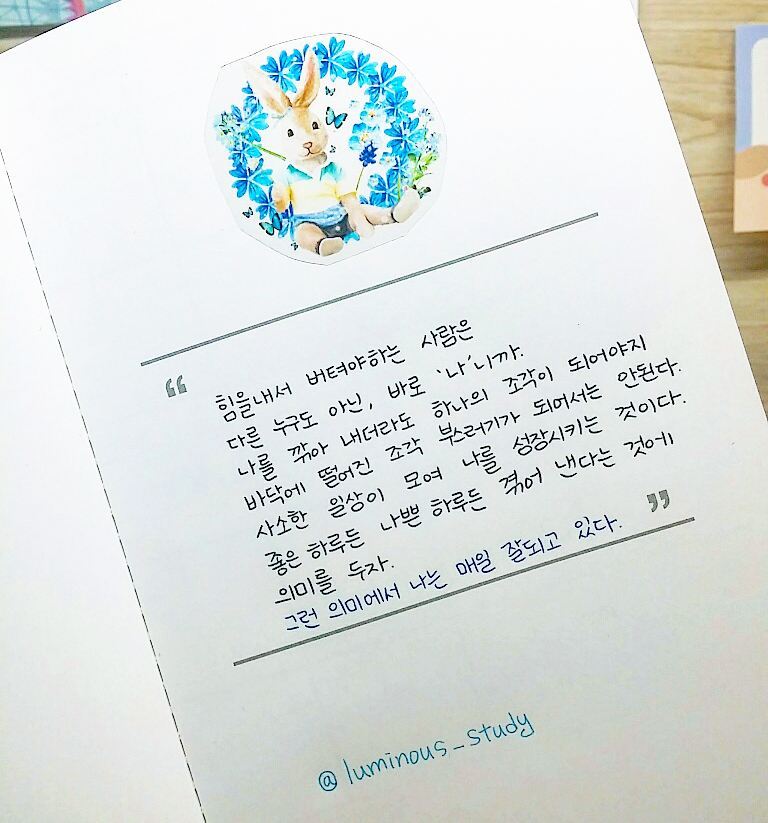 “
힘을내서 버텨야하는 사람은
다른 누구도 아닌, 바로 '나'니까.
나를 깎아 내더라도 하나의 조각이 되어야지
바닥에 떨어진 조각 부스러기가 되어서는 안된다.
사소한 일상이 모여 나를 성장시키는 것이다.
좋은 하루든 나쁜 하루든 겪어 낸다는 것에
의미를 두자.
”
그런 의미에서 나는 매일 잘되고 있다.
@luminous_study